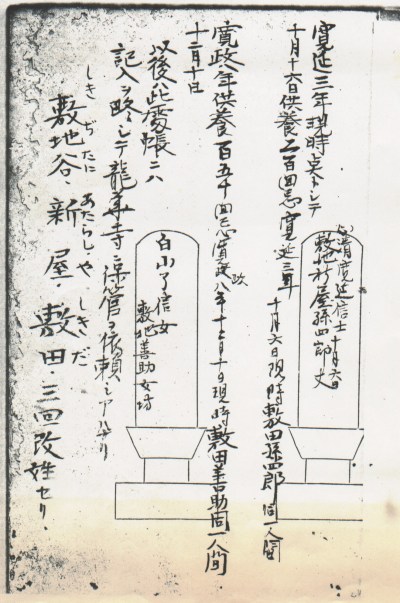 寛延三年現時点トシテ
清寛延信士 十月六日
敷地新屋孫四郎丈
十月十六日供養二百回忌寛延三年十月六日現時敷田孫四郎同一人間
寛政年供養百五十回忌寛政八年十二月十日現時敷田善助同一人間
十二月十日
白山了信女
敷地善助女房
以後此霊帳ニハ
記入ヲ略シテ龍寺ニ保管ヲ依頼シアリ
しきぢたに あたらしや しきだ
敷地谷、新屋、敷田、三回改姓セリ。